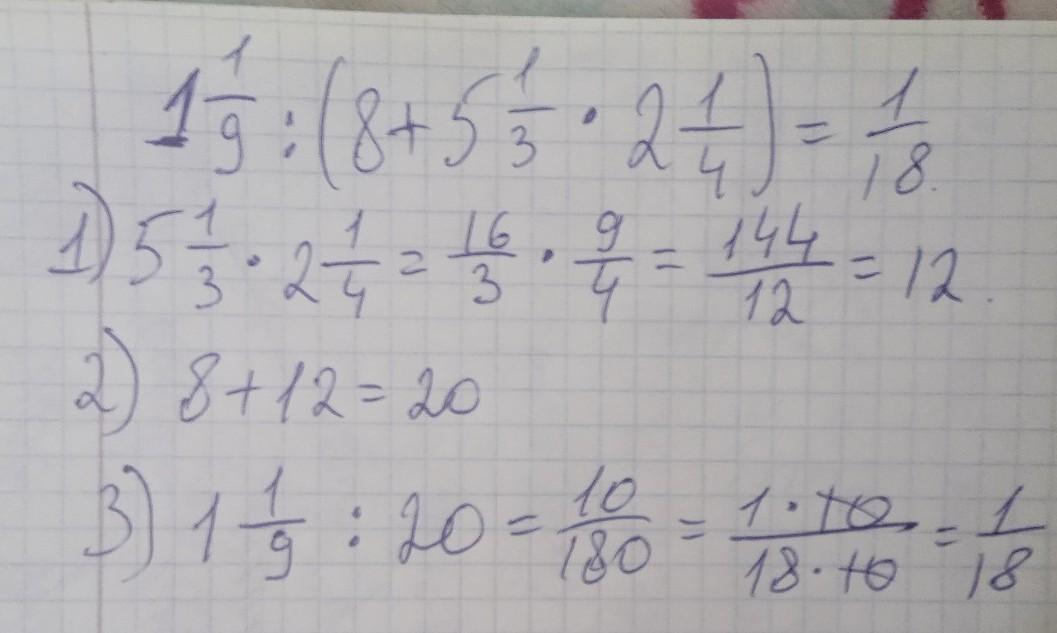 1 1/9 : (8 + 5 1/3 · 2 1/4) = 1/18.
1) 5 1/3 · 2 1/4 = 16/3 · 9/4 = 144/12 = 12.
2) 8 + 12 = 20
3) 1 1/9 : 20 = 10/180 = 1·10/18·10 = 1/18